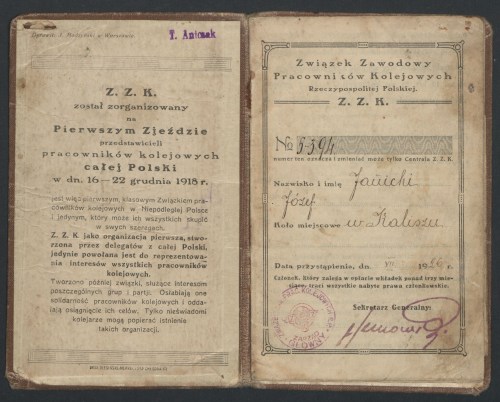 T. Antczak
Z. Z. K.
został zorganizowany
na
Pierwszym Zjeździe
przedstawicieli
pracowników kolejowych
całej Polski
w dn. 16—22 grudnia 1918 r.
jest więc pierwszym, klasowym Związkiem pra-
cowników kolejowych w Niepodległej Polsce
i jedynym, który może ich wszystkich skupić
w swych szeregach.
Z. Z. K. jako organizacja pierwsza, stwo-
rzona przez delegatów z całej Polski,
jedynie powołana jest do reprezentowa-
nia interesów wszystkich pracowników
kolejowych.
Tworzone później związki, służące interesom
poszczególnych grup i partji. Osłabiają one
solidarność pracowników kolejowych i odda-
lają osiągnięcie ich celów. Tylko nieświadomi
kolejarze mogą popierać istnienie
takich organizacji.
Związek Zawodowy
Pracowników Kolejowych
Rzeczypospolitej Polskiej.
Z. Z. K.
№ 5394
numer ten oznacza i zmieniać może tylko Centrala Z. Z. K.
Nazwisko i imię Janicki
Józef
Koło miejscowe w Kaliszu
Data przystąpienia, dn. VII 1926 r.
Członek, który zalega w opłacie wkładek ponad trzy mie-
siące, traci wszystkie nabyte prawa członkowskie.
Sekretarz Generalny: